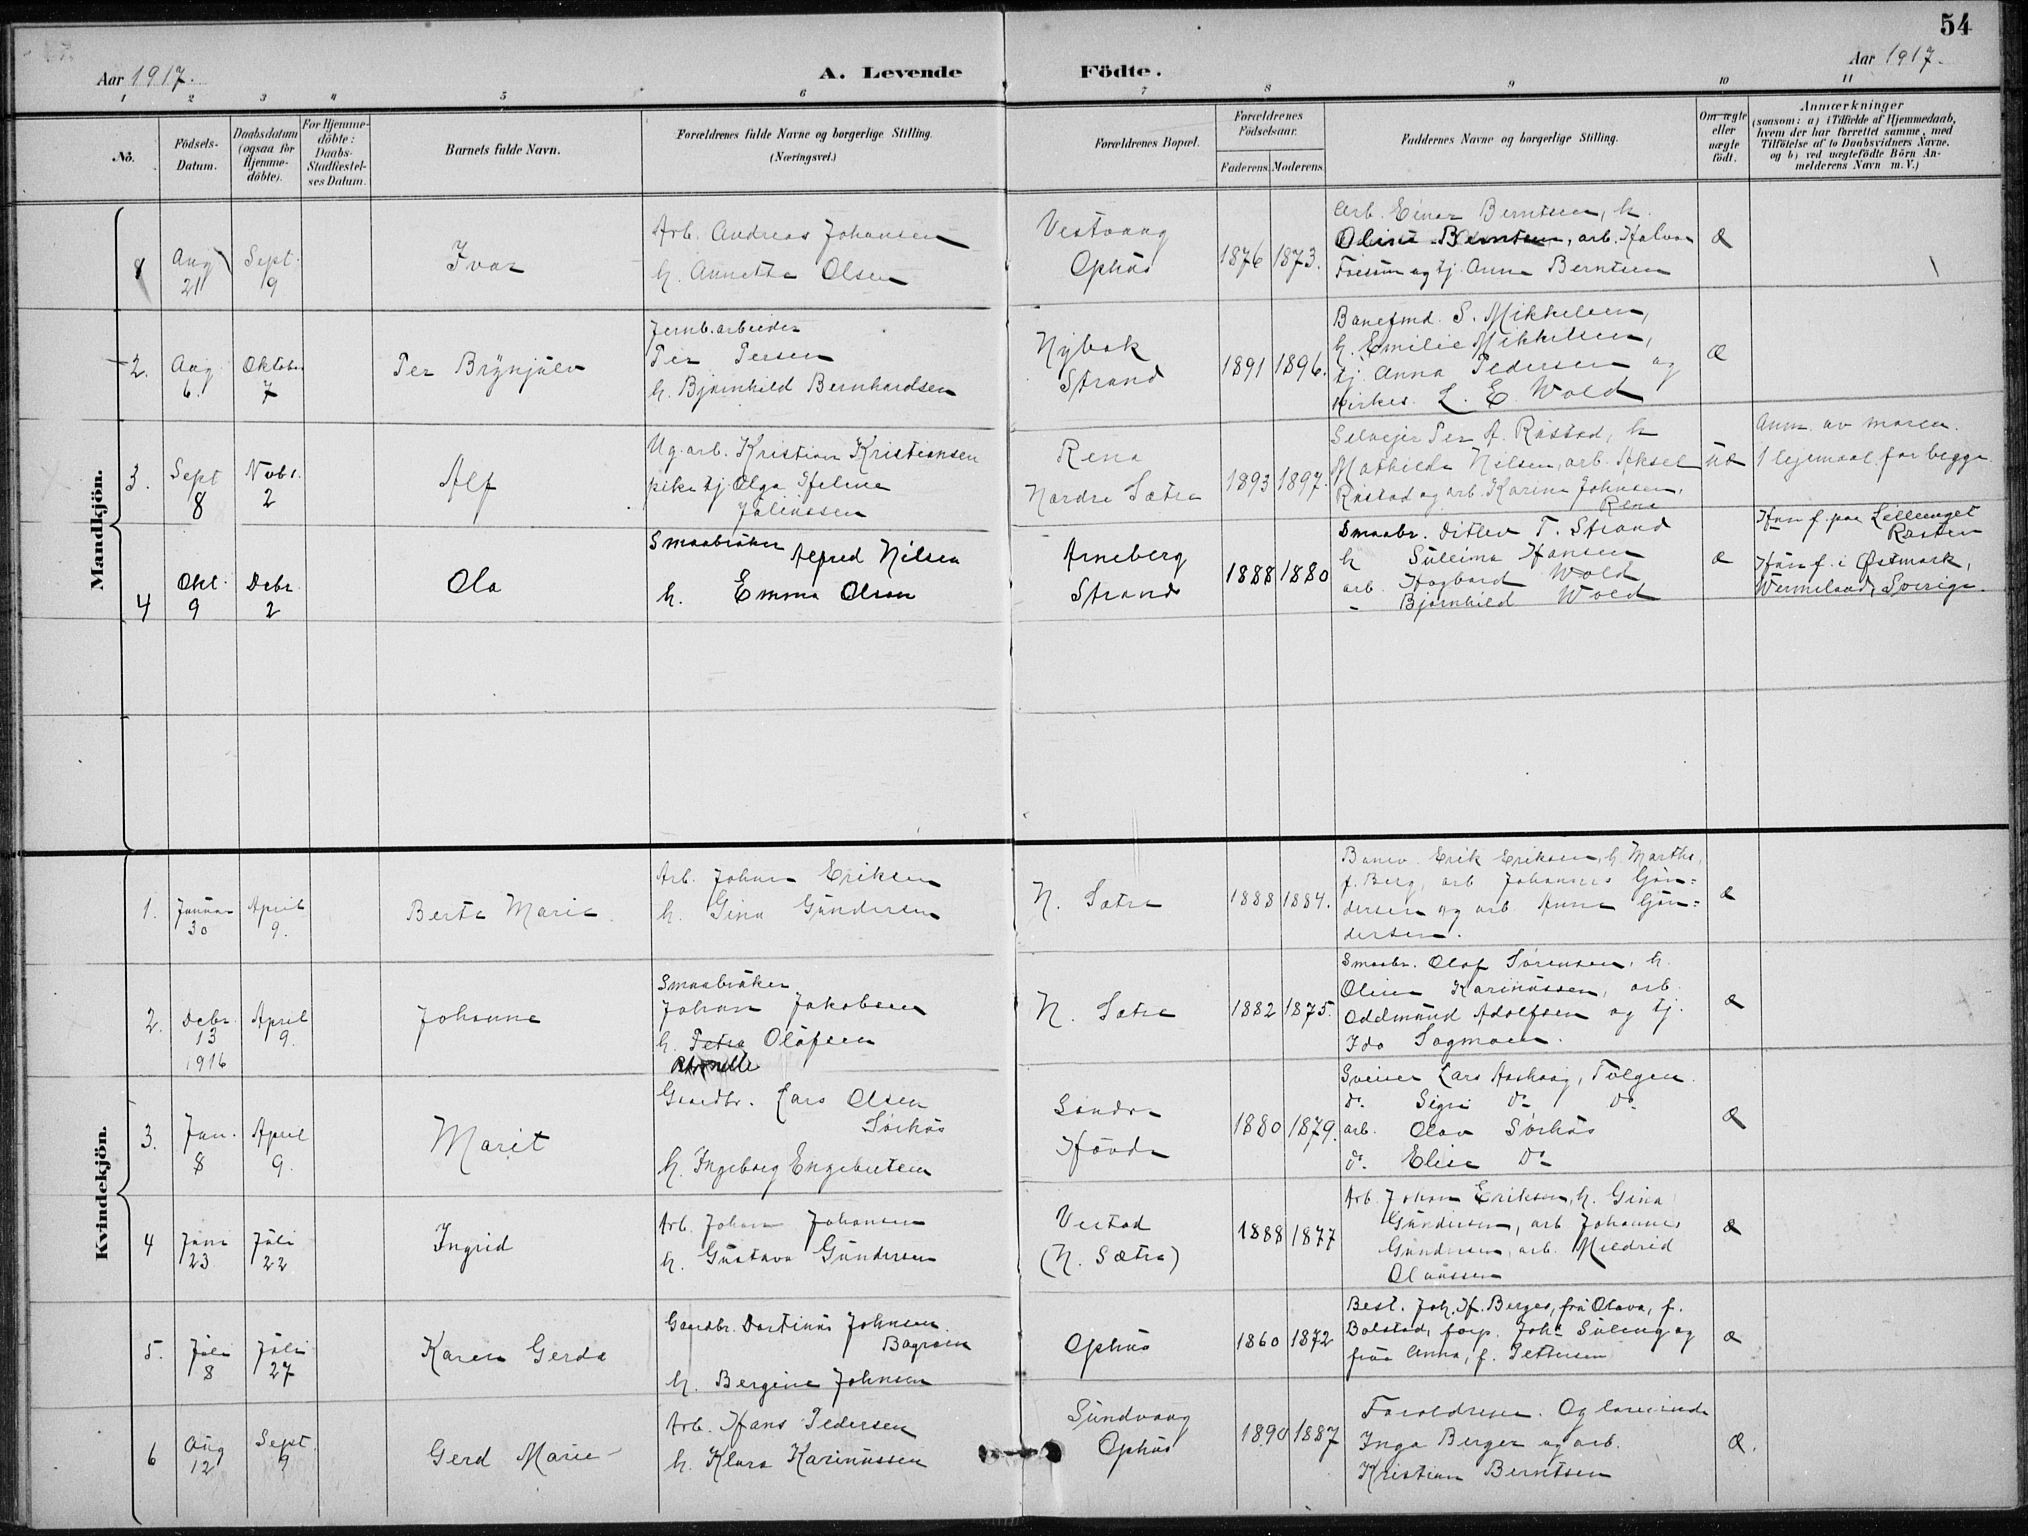 54
Aar 1917.
A. Levende Födte.
Aar 1917.
1 2 3 4 5 6 7 8 9 10 11
No.
Födsels-Datum.
Daabsdatum (ogsaa for Hjemme-döbte).
For Hjemme-döbte: Daabs-Stadfæstel-ses Datum.
Barnets fulde Navn.
Forældrenes fulde Navne og borgerlige Stilling.
(Næringsvei.)
Forældrenes Bopæl.
Forældrenes Födselsaar.
Faderens. Moderens.
Faddernes Navne og borgerlige Stilling.
Om ægte eller uægte født.
Anmærkninger
(saasom: a) i Tilfælde af Hjemmedaab,
hvem der har forrettet samme, med
Tilföielse af to Daabsvidners Navne,
og b) ved uægtefödte Börn An-
melderens Navn m. V.)
Mandkjön.
1 Aug 21 Sept. 9
Ivar
Arb. Andreas Johansen
h. Annette Olsen
Vestvang
Ophus
1876 1873.
Arb. Einar Berntsen, h.
Oline Berntsen, arb. Halvor
Fossum og tj. Anna Berntsen
Æ
2. Aug 6. Oktober 7
Per Brynjulv
Jernb.arbeider
Per Persen
h. Bjørnhild Bernhardsen
Nybak
Strand
1891 1896.
Baneformd. S. Mikkelsen,
h. Emilie Mikkelsen,
tj. Anna Pedersen og
Kirkes. L. E. Wold
Æ
3. Sept 8 Novbr. 2
Alf
Ug.arb. Kristian Kristiansen
pike tj. Olga Efeline
Julinssen
Rena
Nordre Sætre
1893 1897.
Selveier Per A. Råstad, h.
Mathilde Nilsen, arb. Aksel
Råstad og arb. Karina Johnsen,
Rena
uæ
Anm. av moren.
1 leiemaal for begge
4 Okt. 9 Debr. 2
Ola
Smaabruker Alfred Nilsen
h. Emma Olsen
Arneberg
Strand
1888 1880
Smaabr. Ditlev T. Strand
h Suleima Hansen
arb. Hagbard Wold
- Bjørnhild Wold
Æ
Han f. paa Lilleenget
Rasten
Hun f. i Østmark,
Wermeland, Sverige.
Kvindekjön.
1. Januar 30 April 9.
Berta Marie
Arb. Johan Eriksen
h. Gina Gundersen
N. Sætre
1888 1884.
Banev. Erik Eriksen, h. Marthe,
f. Berg, arb Johannes Gun=
dersen og arb. Anna Gun=
dersen.
Æ
2. Debr. 13 1916 April 9.
Johanne
Smaabruker
Johan Jakobsen
h. Petra Olafsen
Pernille
N. Sætre
1882 1875.
Smaabr. Olaf Sørensen, h.
Oline Karinussen, arb.
Oddmund Adolfsen og tj.
Ida Sagmoen.
Æ
3. Jan. 8 April 9.
Marit
Gaardbr. Lars Olsen
Sørhus
h. Ingeborg Engebretsen
Søndre
Hovde
1880 1879.
Sveiser Lars Aashaug, Tolgen
do. Sigri do do.
arb. Olav Sørhus
do. Elise do
Æ
4 Juni 23 Juli 22
Ingrid
Arb. Johan Johansen
h. Gustava Gundersen
Vestad
(N. Sætre)
1888 1877
Arb. Johan Eriksen, h. Gina
Gundersen, arb Johannes
Gundersen, arb. Mildrid
Olaussen
Æ
5. Juli 8 Juli 27
Karen Gerda
Gaardbr. Dortinus Johnsen
h. Bergine Johnsen
Ophus
1860 1872
Best. Joh. H. Berger, fru Olava, f.
Bolstad, forp. Joh. Suleng og
frue Anna, f. Pettersen
Æ
6 Aug 12 Sept. 9
Gerd Marie
Arb. Hans Pedersen
h. Klara Karinussen
Sundvang
Ophus
1890 1887
Forældrene. Og lærerinde
Inga Berger og arb.
Kristian Berntsen
Æ.